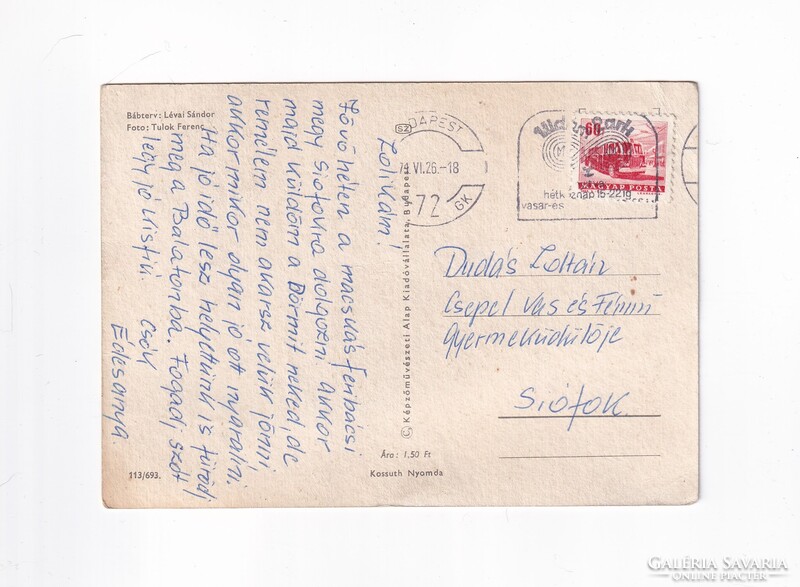 Bábterv: Lévai Sándor
Foto: Tulok Ferenc
Zolikám!
Jövő héten a macskás Feribácsi
megy Siófokra dolgozni, akkor
majd küldöm a Börmit neked, de
remélem nem akarsz velük jönni
akkor mikor olyan jó ott nyaralni.
Ha jó idő lesz helyettünk is fürödj
meg a Balatonba. Fogadj szót
légy jó kisfiú. Csók
Édesanya
113/693.
© Képzőművészeti Alap Kiadóvállalata, Budapest
Ára: 1,50 Ft
Kossuth Nyomda
BUDAPEST
SZ
VI. 26.-18
72
GK
Vid Park
hétköznap 15-22 ig
vasár-és
60
MAGYAR POSTA
Dudás Zoltán
Csepel Vas és Fémmű
Gyermeküdülője
SIÓFOK
GALÉRIA SAVARIA
ONLINE PIACTÉR